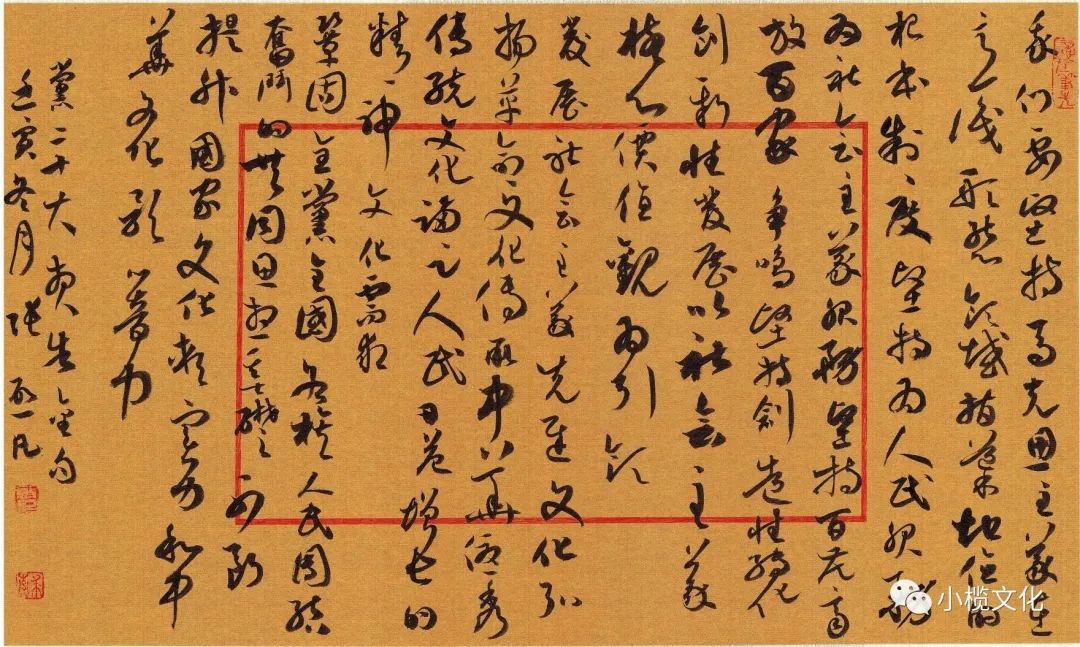 我们要坚持马克思主义在
意識形態领域指导地位的
根本制度坚持为人民服務
为社会主义服務坚持百花齊
放百家争鳴坚持創造性轉化
创新性发展以社會主义
核心價值觀为引领
发展社会主义先進文化弘
扬革命文化傳承中华優秀
傳統文化满足人民日益增长的
精神文化需求
鞏固全黨全國各族人民團结
奮鬥的共同思想基礎不断
提升國家文化軟实力和中
華文化影响力
黨二十大报告金句
壬寅冬月 张
小榄文化